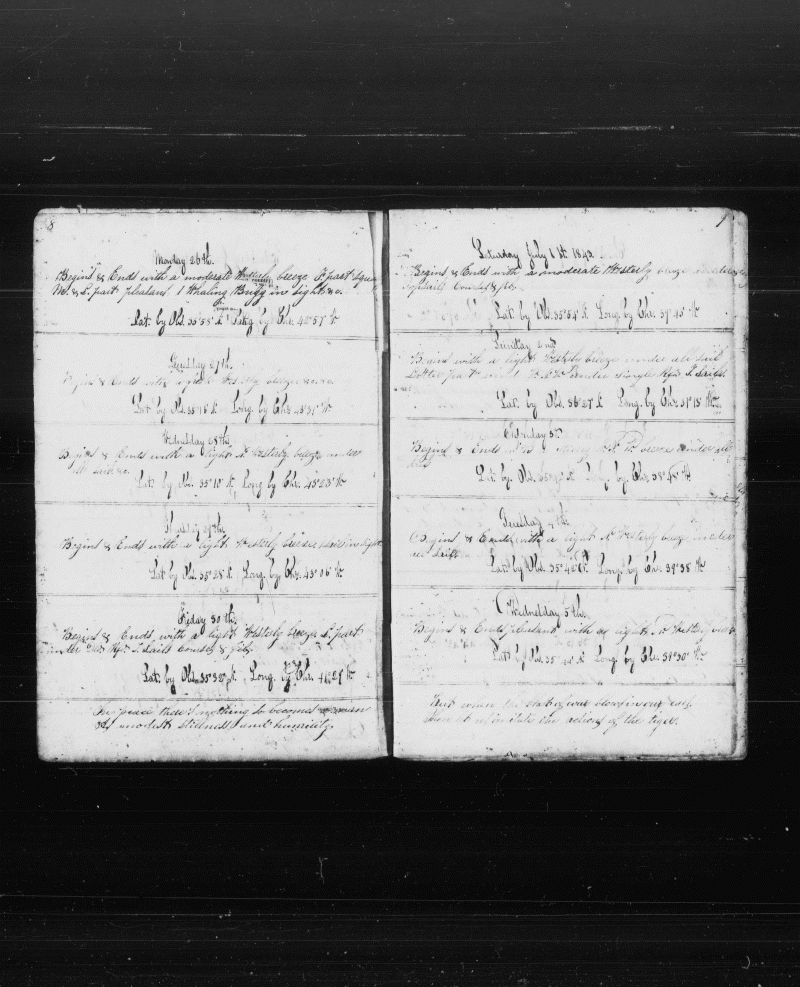 8
Monday 26th.
Begins & Ends with a moderate Westerly breeze F. part Squa
M. & L. part pleasant 1 Whaling Brigg in Sight &c.
Lat. by Obs. 35°58' N Long by Chr. 42°57' W
Tuesday 27th.
Begins & Ends with a light Westerly breeze &c &c
Lat by Obs. 35°16' N Long. by Chr. 43°31' W
Wednesday 28th.
Begins & Ends with a light N Westerly breeze under
all sail &c.
Lat. by Obs. 35°10' N. Long by Chr. 45°23' W
Thursday 29th.
Begins & Ends with a light Westerly breeze in sight
Lat by Obs. 35°28' N. Long. by Chr. 43°06' W
Friday 30th.
Begins & Ends with a light Westerly breeze L. part
under T. Sails Comes & Joby
Lat. by Obs. N. Long. by Chr. W
In peace there's nothing so becomes a man
As modest stillness and humility.
9
Saturday July 1st. 1843.
Begins & Ends with a moderate Westerly breeze
Lat. by Obs. 35°54' N. Long. by Chr. 37°45' W
Sunday 2nd
Begins with a light Westerly breeze under all sail
Latter part under single T. Sails.
Lat. by Obs. 36°27' N Long. by Chr. 37°15' W
Monday 3d.
Begins & Ends with a breeze under all
sail
Lat. by Obs. Long. by Chr. 38°48' W
Tuesday 4th.
Begins & Ends with a light N Westerly breeze under
all Sail
Lat by Obs. 35°42' N Long. by Chr. 39°38' W
Wednesday 5th.
Begins & Ends pleasant with a light N Westerly
Lat by Obs. 35 N Long. by Chr. 39°30' W.
But when the blast of war blows in our ears
Then imitate the action of the tiger.